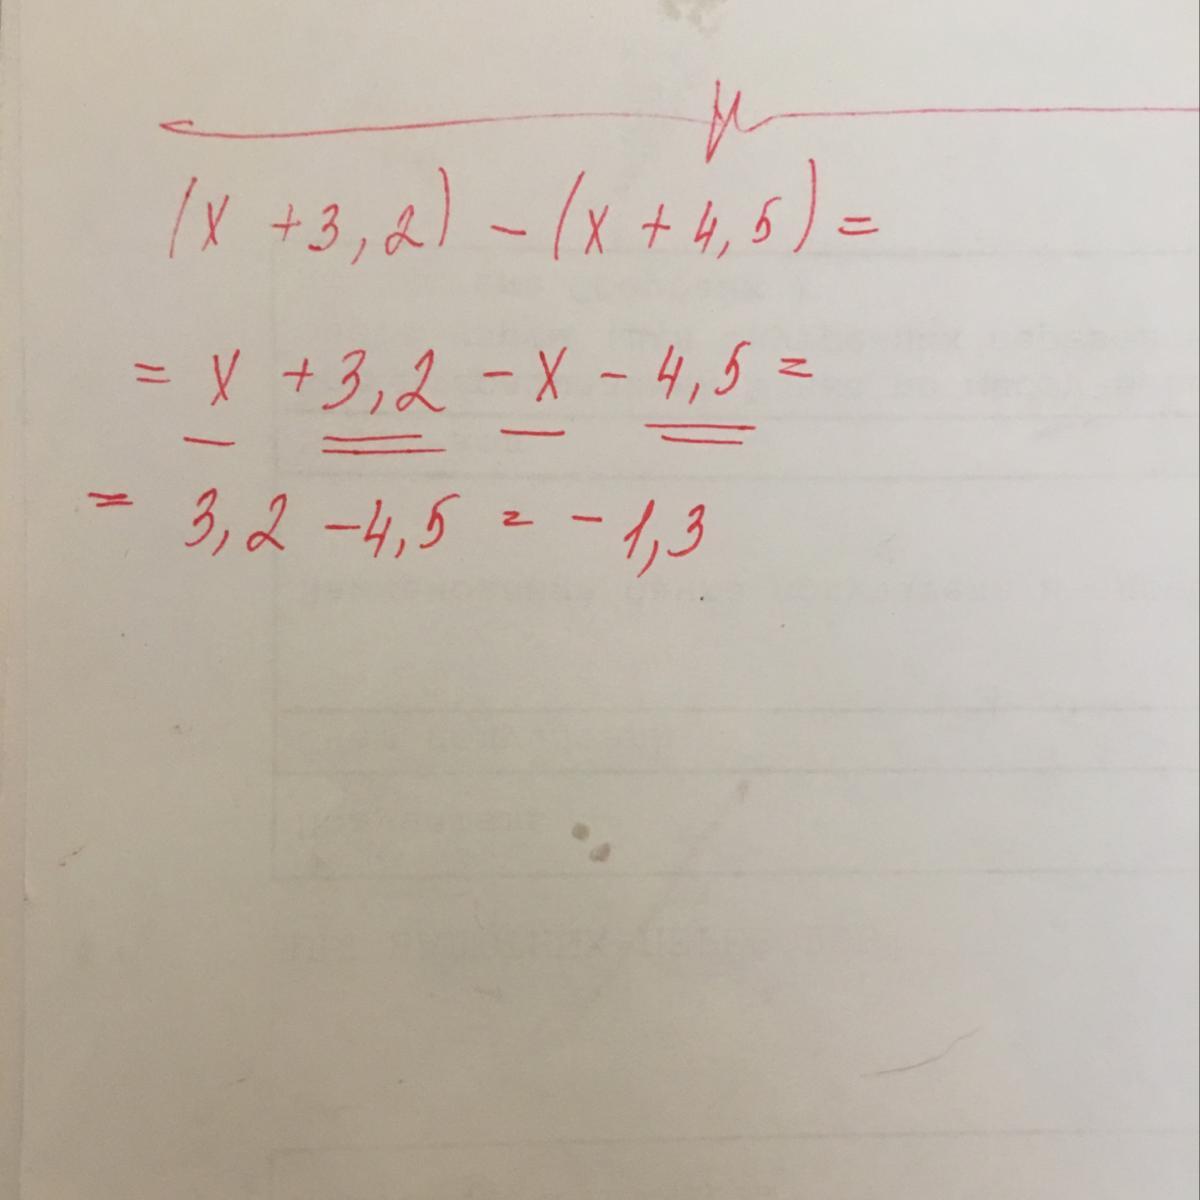 (x + 3,2) - (x + 4,5) =
= x + 3,2 - x - 4,5 =
= 3,2 - 4,5 = - 1,3